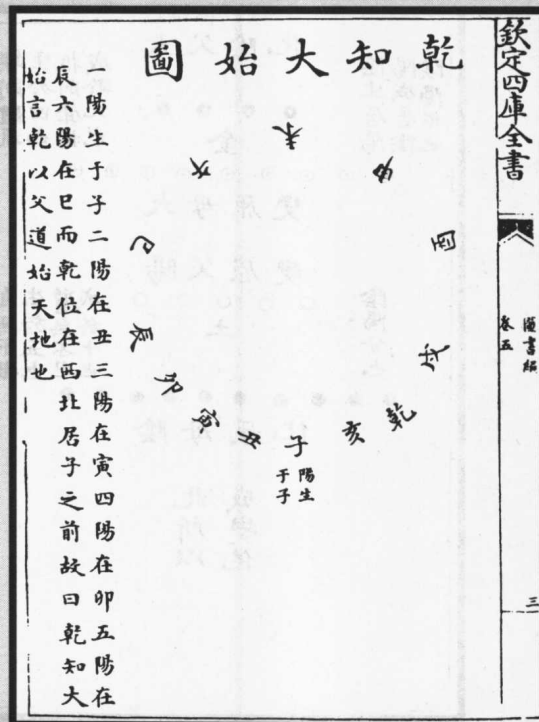 欽定四庫全書
圖書編
卷五
三
乾知大始圖
未
申
酉
戌
乾
亥
子
陽生
于子
丑
寅
卯
辰
巳
午
一陽生于子二陽在丑三陽在寅四陽在卯五陽在
辰六陽在巳而乾位在西北居子之前故曰乾知大
始言乾以父道始天地也